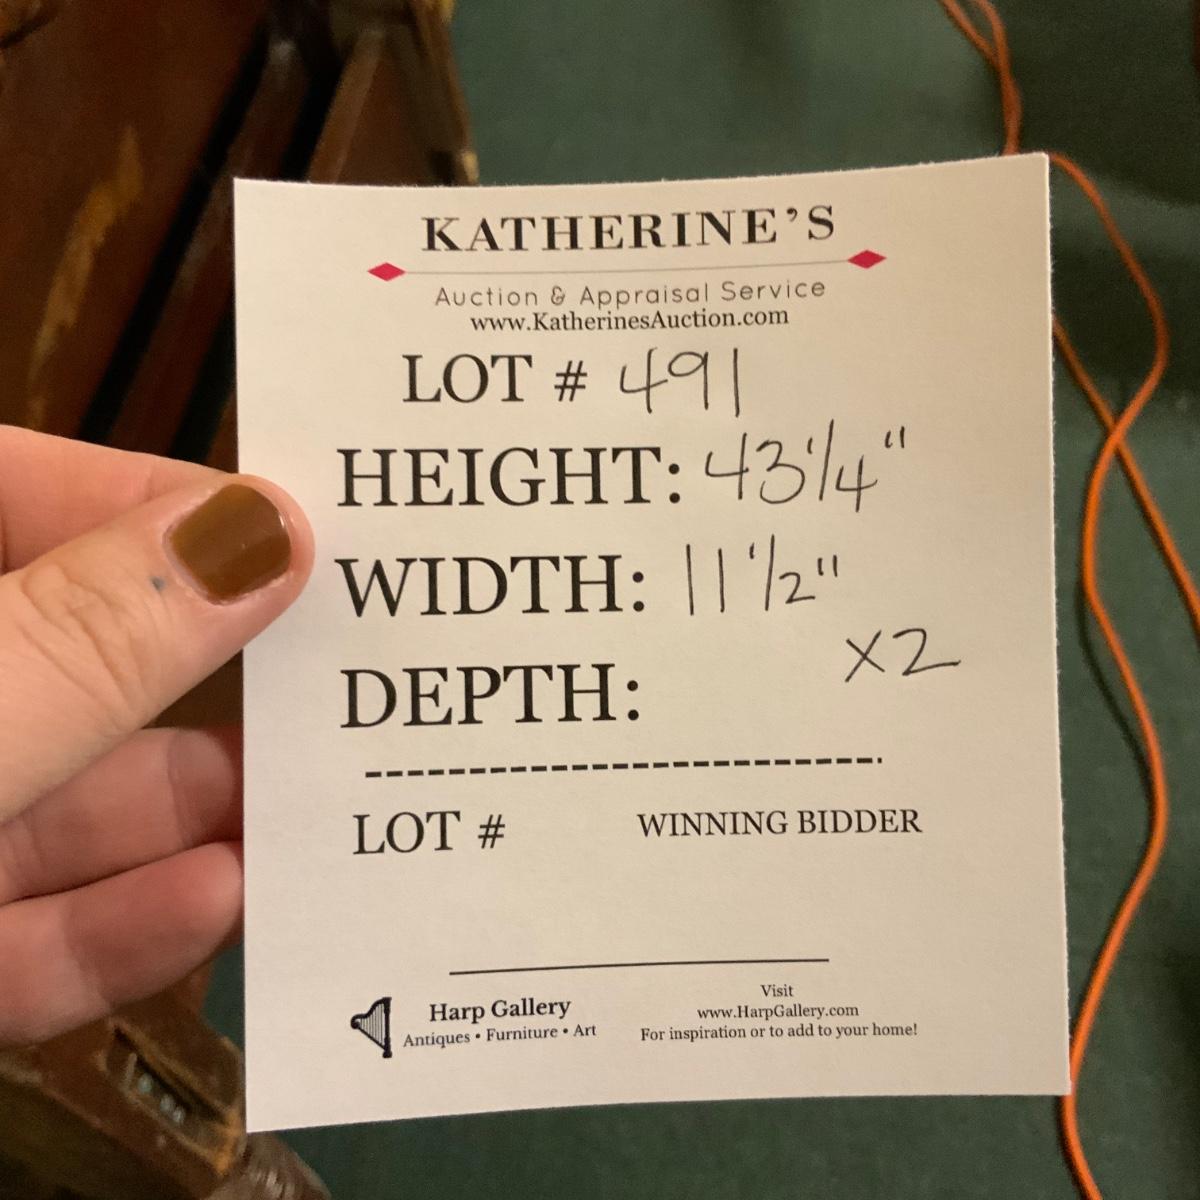 KATHERINE'S
Auction & Appraisal Service
www.KatherinesAuction.com
LOT # 491
HEIGHT: 43 1/4"
WIDTH: 11 1/2"
x2
DEPTH:
LOT # WINNING BIDDER
Harp Gallery
Antiques • Furniture • Art
Visit
www.HarpGallery.com
For inspiration or to add to your home!